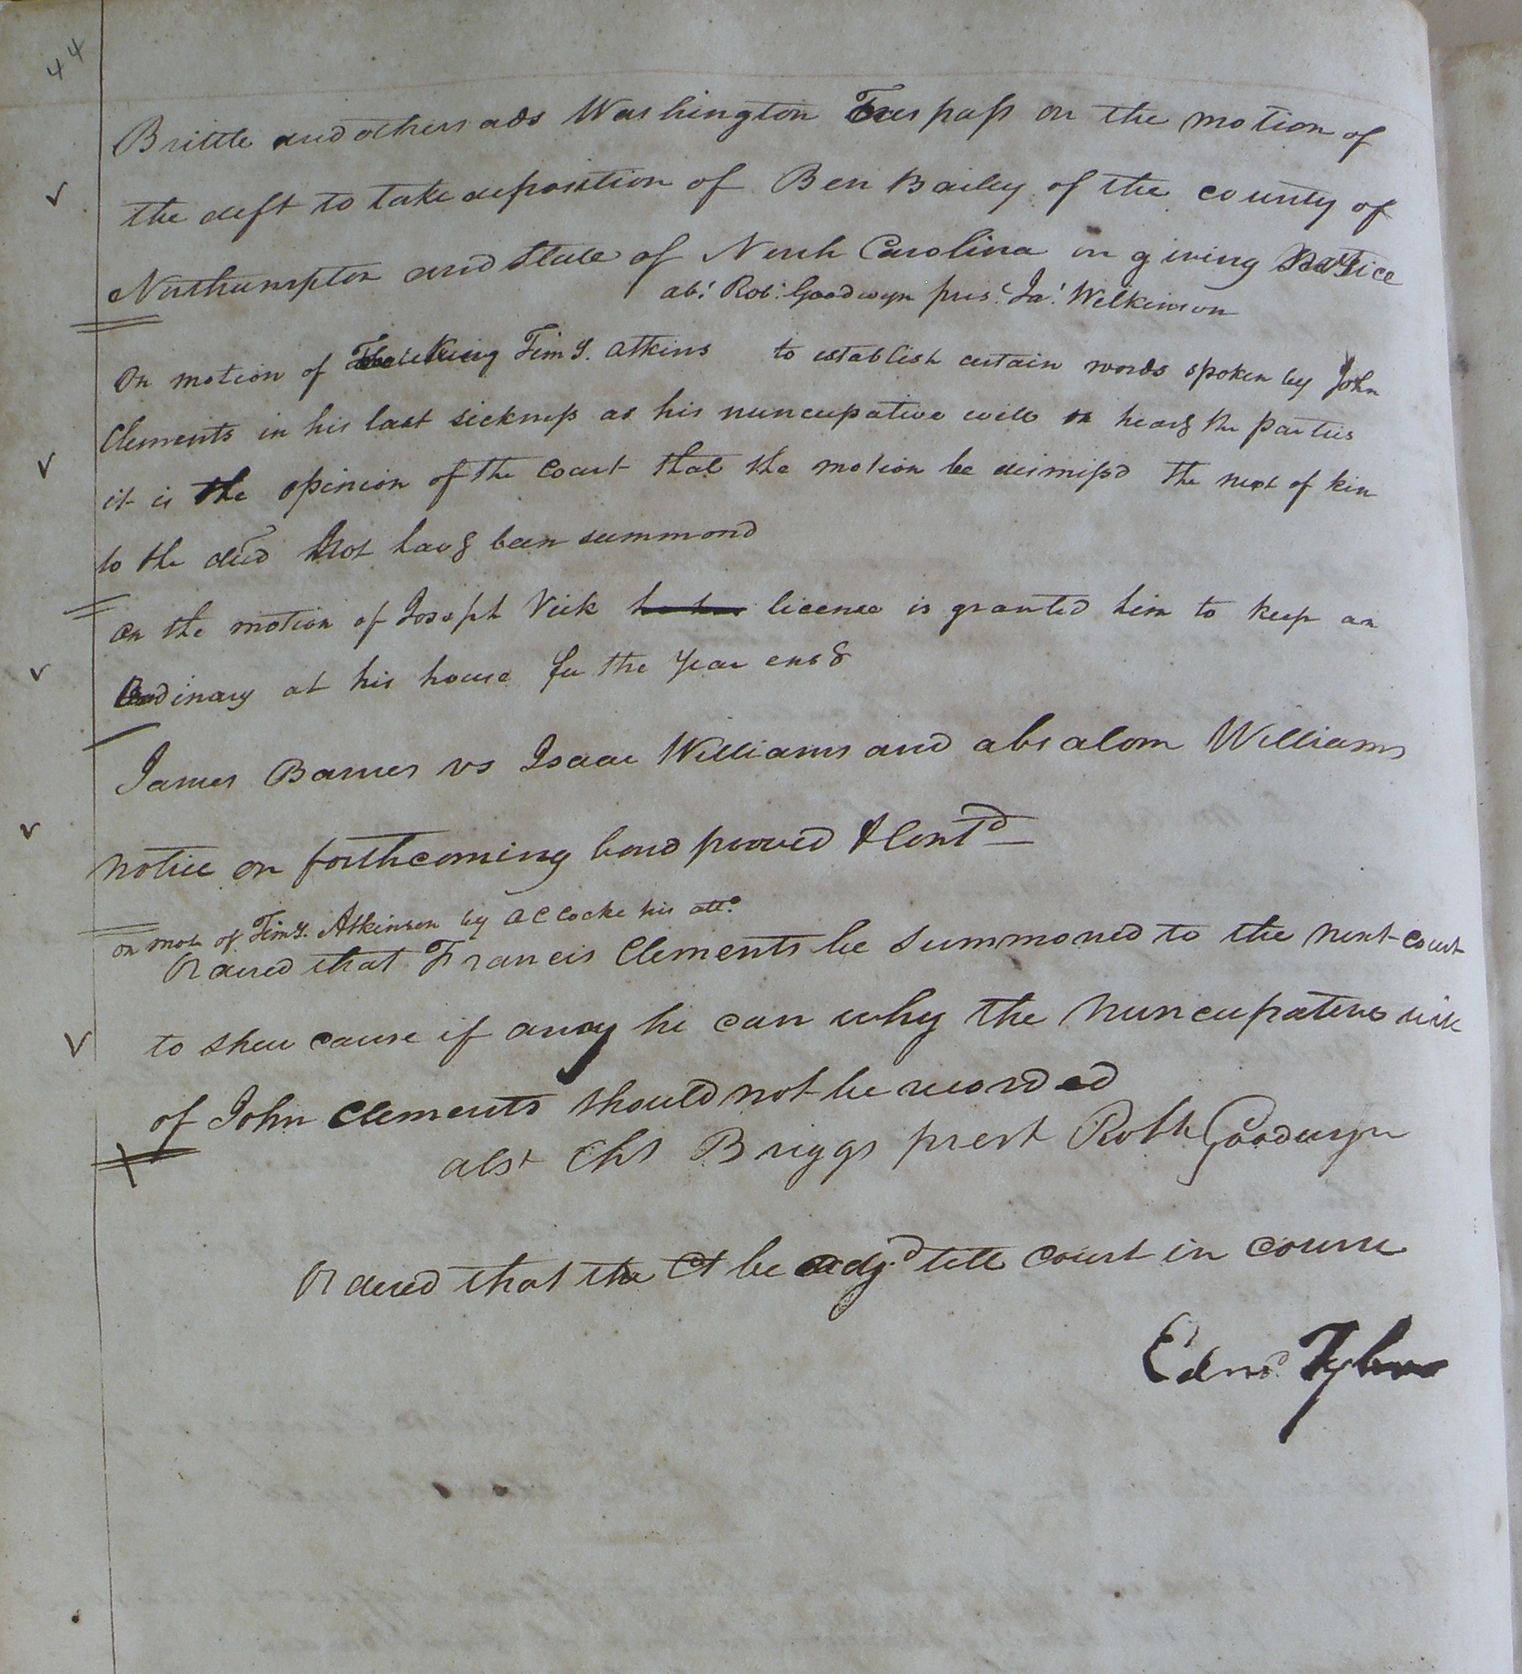 44
Brittle and others ads Washington Trespass on the motion of
the deft to take deposition of Ben Bailey of the county of
Northampton and State of North Carolina on giving Notice
abt. Robt. Goodwyn prest. Jas. Wilkinson
On motion of Timy. Atkins to establish certain words spoken by John
Clements in his last sickness as his nuncupative will on heag the parties
it is the opinion of the Court that the motion be dismissd the next of kin
to the decd Not havg been summond
on the motion of Joseph Vick license is granted him to keep an
Ordinary at his house for the Year ensg
James Barnes vs Isaac Williams and absalom Williams
notice on forthcoming bond prooved & Contd
on mot of Timy. Atkinson by A C Cocke his atto.
Ordered that Francis Clements be Summoned to the next Court
to shew cause if anay he can why the Nuncupative will
of John Clements should not be recorded
abst Chs Briggs prest Robt Goodwyn
Ordered that the Ct be adjd till Court in course
Edmd. Tyler